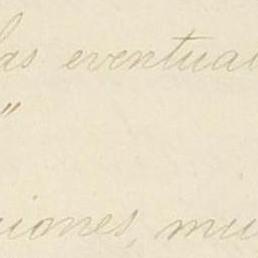 las eventua
"
iones, mu